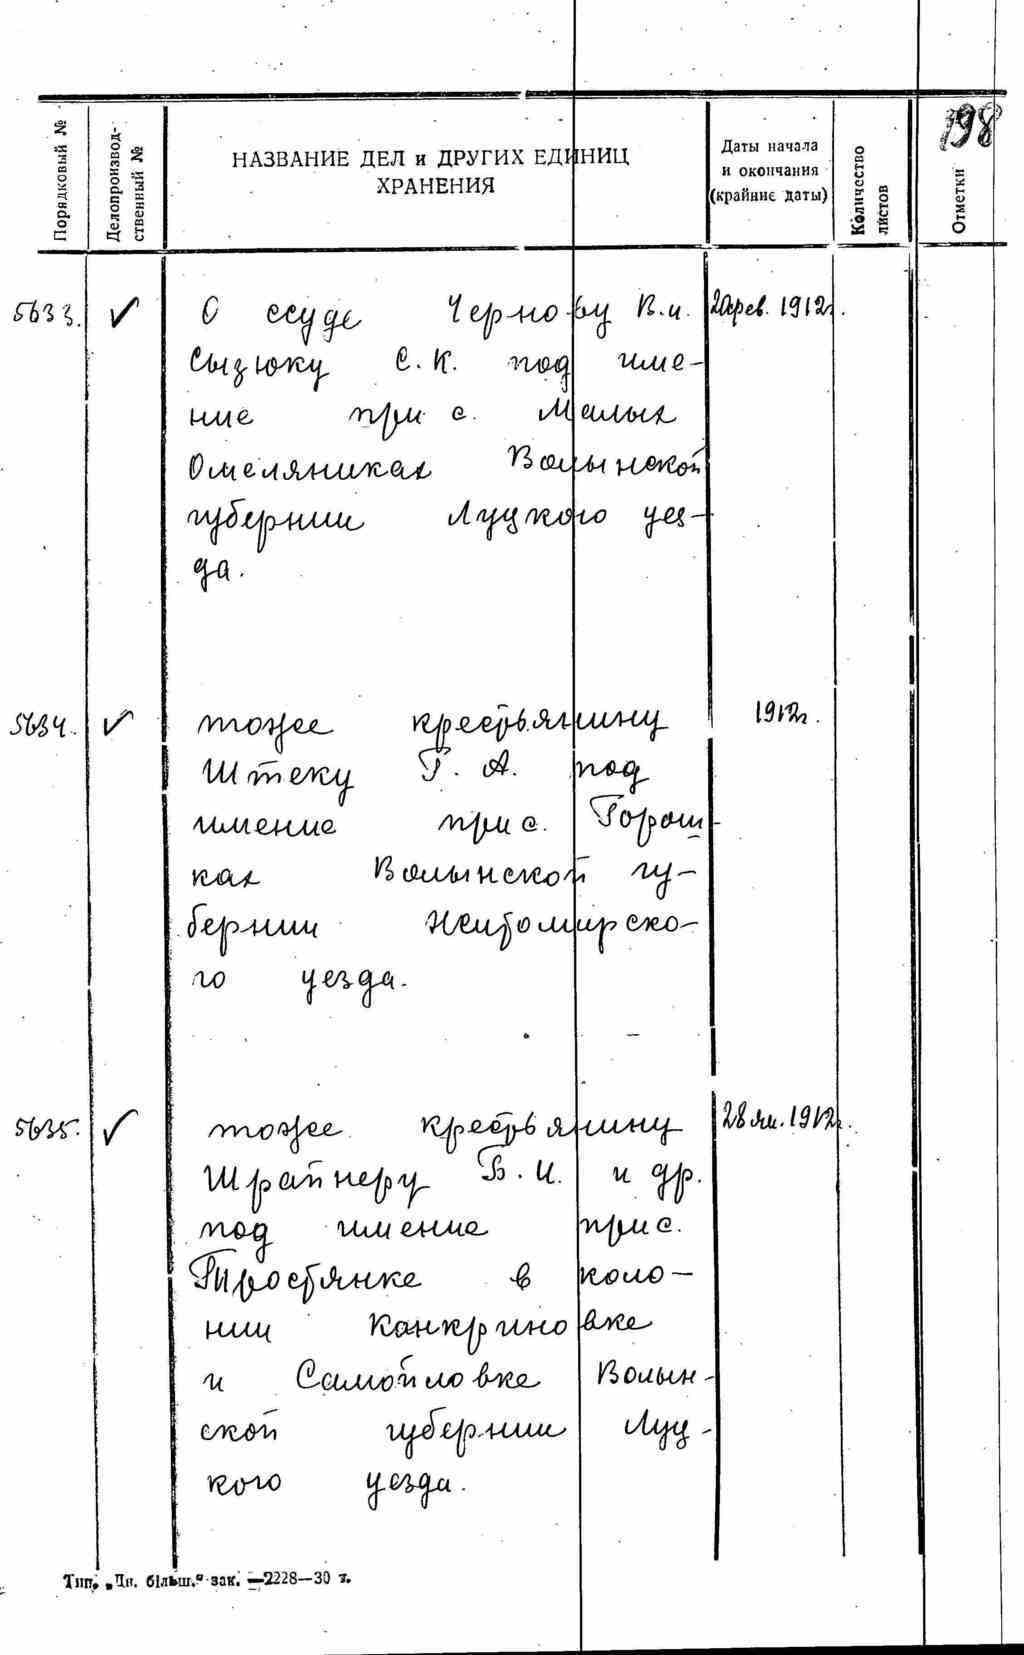 398
Порядковый №
Делопроизвод-
ственный №
НАЗВАНИЕ ДЕЛ и ДРУГИХ ЕДИНИЦ
ХРАНЕНИЯ
Даты начала
и окончания
(крайние даты)
Количество
листов
Отметки
5633. ✓ О ссуде Чернову В.и.
Сызюку С.К. под име-
ние при с. Малых
Омеляниках Волынской
губернии Луцкого уез-
да.
1912г.
5634. ✓ тоже крестьянину
Штеку Г. А. под
имение при с. Горош-
ках Волынской гу-
бернии Житомирско-
го уезда.
1912г.
5635. ✓ тоже крестьянину
Шрайнеру В. И. и др.
под имение при с.
Тростянке в коло-
нии Канкриновке
и Самойловке Волын-
ской губернии Луц-
кого уезда.
28 ян. 1912г.
Тип. „Чн. більш.“ зак. —2228—30 т.